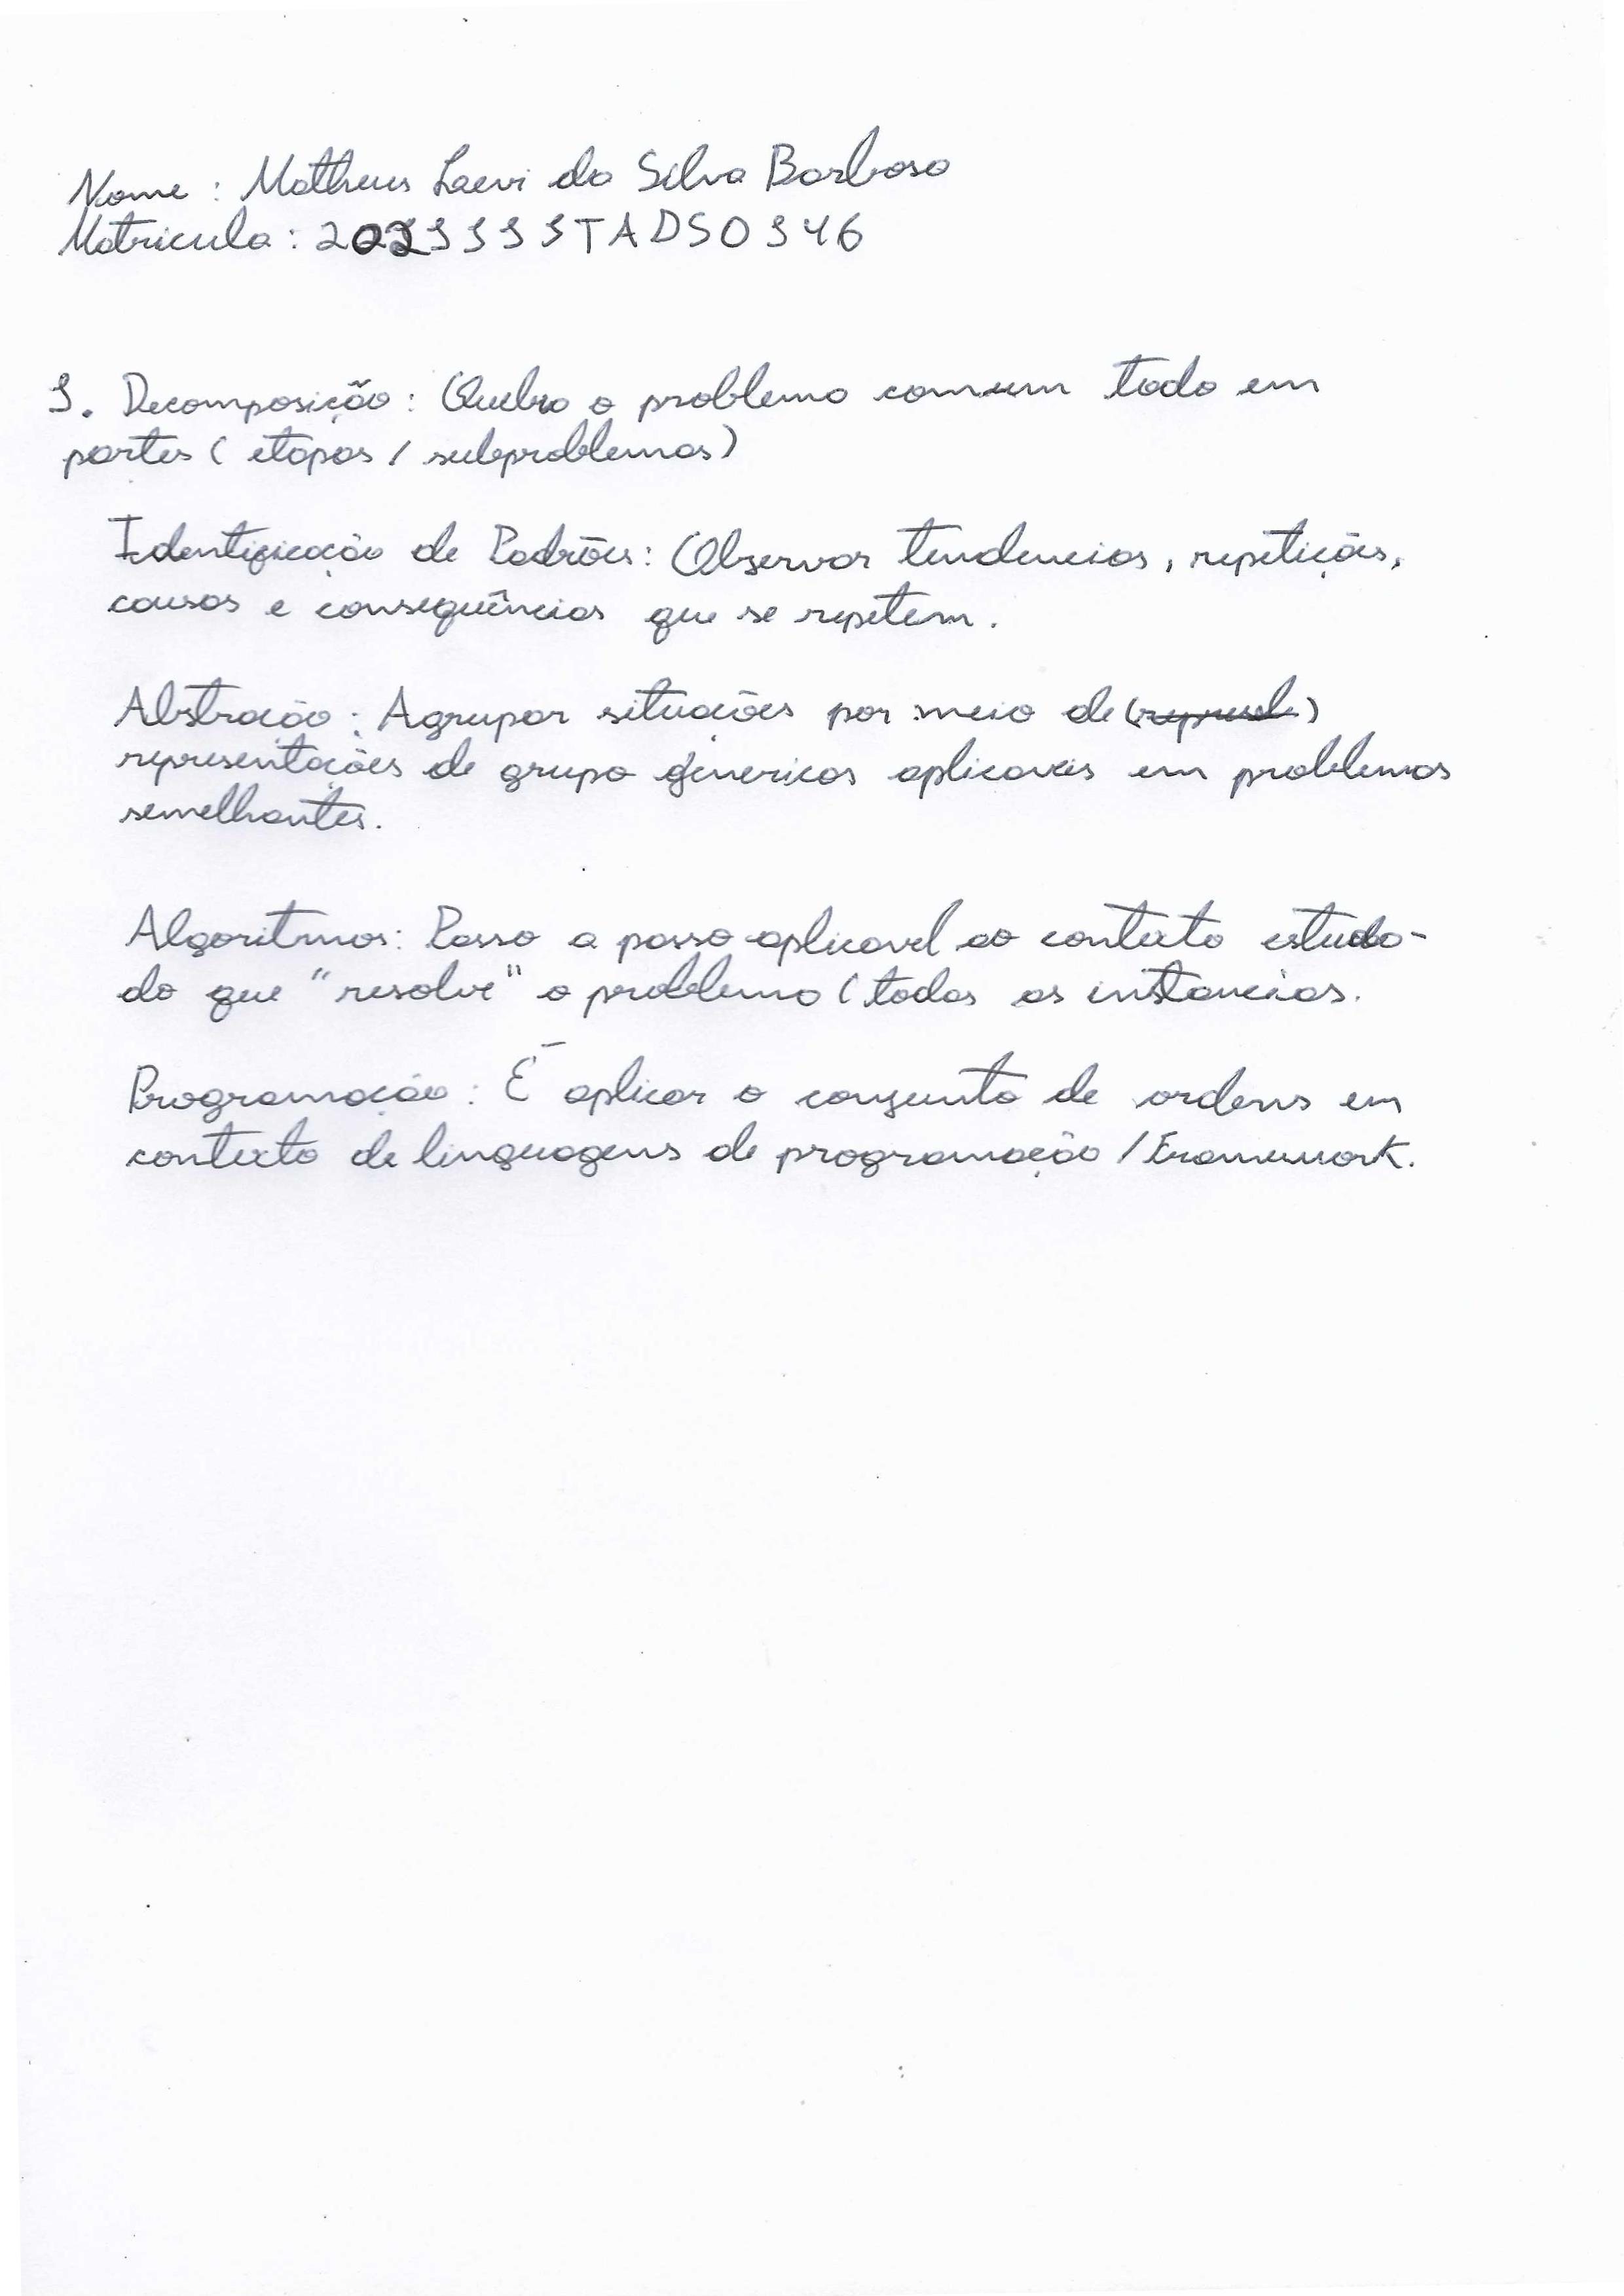 Nome : Matheus Laevi da Silva Barbosa
Matricula : 20231111TADS0146
1. Decomposição : Quebra o problema comum todo em
partes ( etapas / subproblemas )
Identificação de Padrões : Observar tendencias , repetições,
causas e consequências que se repetem .
Abstração : Agrupar situações por meio de ( )
representações de grupo génericas aplicaveis em problemas
semelhantes .
Algoritmos : Passo a passo aplicavel ao contexto estuda-
do que "resolve" o problema ( todas as instancias .
Programação : É aplicar o conjunto de ordens em
contexto de linguagens de programação / Framework .